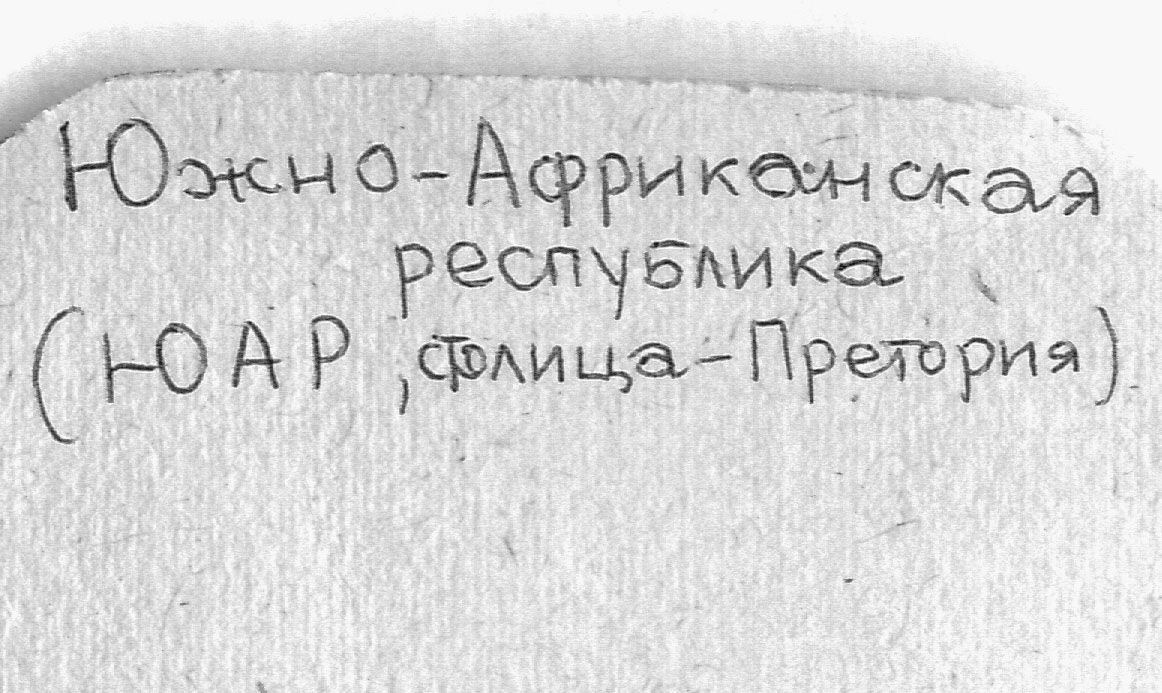 Южно-Африканская
республика
(ЮАР, столица-Претория)